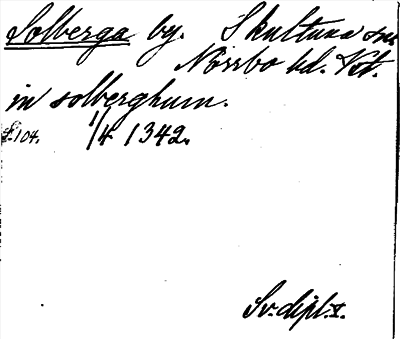 Solberga by. Skultuna sn.
Norrbo hd. Vst.
in solberghum.
s. 104. 1/4 1342.
Sv. dipl. V.